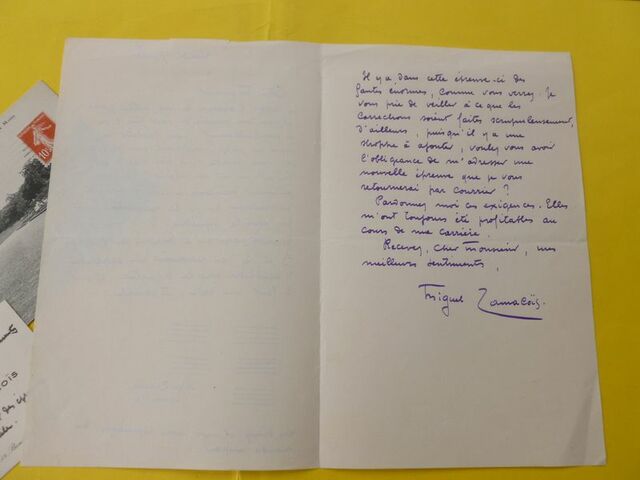 Il y a dans cette épreuve-ci des
fautes énormes, comme vous verrez. Je
vous prie de veiller à ce que les
corrections soient faites scrupuleusement,
d'ailleurs, puisqu'il y a une
strophe à ajouter, voulez vous avoir
l'obligeance de m'adresser une
nouvelle épreuve que je vous
retournerai par courrier ?
Pardonnez moi ces exigences. Elles
m'ont toujours été profitables au
cours de ma carrière.
Recevez, cher Monsieur, mes
meilleurs sentiments,
Miguel Zamacoïs.
10
OÏS